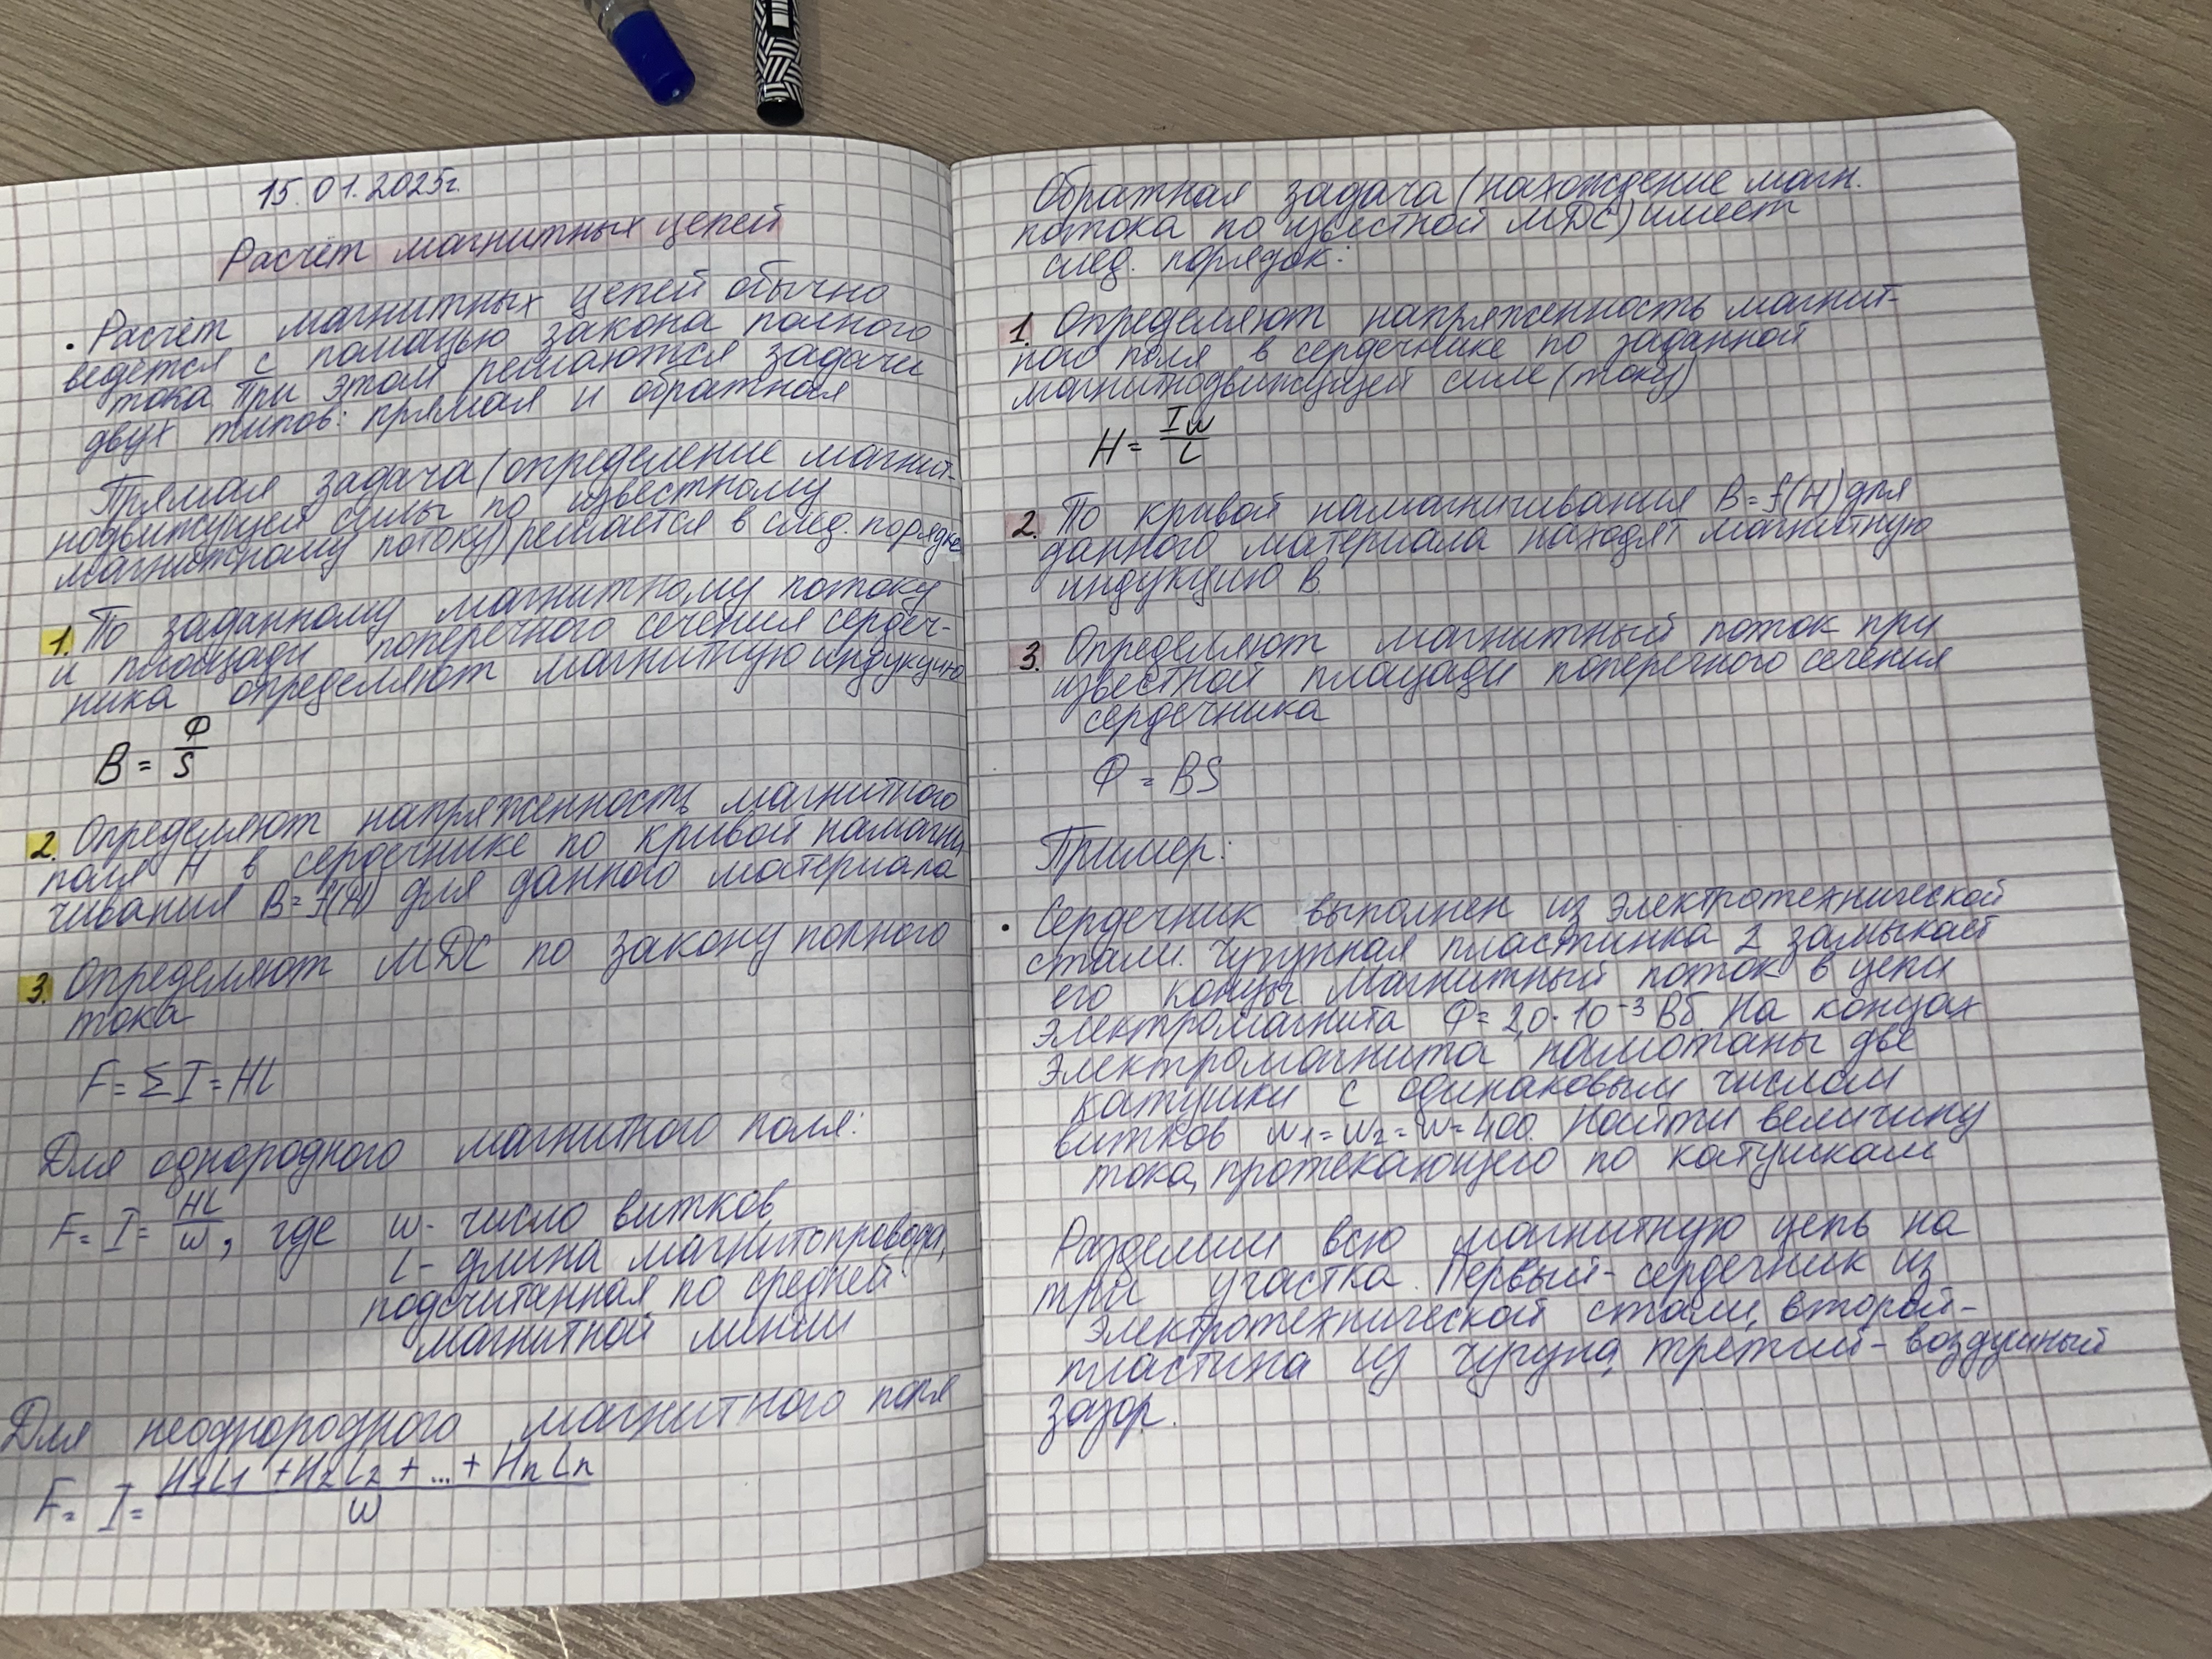 15.01.2025г.
Расчёт магнитных цепей
• Расчёт магнитных цепей обычно
ведётся с помощью закона полного
тока. При этом решаются задачи
двух типов: прямая и обратная
Прямая задача (определение магнит-
нодвижущей силы по известному
магнитному потоку) решается в след. порядке
1. По заданному магнитному потоку
и площади поперечного сечения сердеч-
ника определяют магнитную индукцию
B = Ф/S
2. Определяют напряженность магнитного
поля H в сердечнике по кривой намагни
чивания B = f(H) для данного материала
3. Определяют МДС по закону полного
тока
F = ΣI = HL
Для однородного магнитного поля:
F = I = HL/w, где w - число витков
L - длина магнитопровода,
подсчитанная по средней
магнитной линии
Для неоднородного магнитного поля
F = I = H₁L₁ + H₂L₂ + ... + HnLn / w
Обратная задача (нахождение магн.
потока по известной МДС) имеет
след. порядок:
1. Определяют напряженность магнит-
ного поля в сердечнике по заданной
магнитнодвижущей силе (току)
H = Iw/L
2. По кривой намагничивания B = f(H) для
данного материала находят магнитную
индукцию B.
3. Определяют магнитный поток при
известной площади поперечного сечения
сердечника
Ф = BS
Пример:
• Сердечник выполнен из электротехнической
стали. Чугунная пластинка 2 замыкает
его концы. Магнитный поток в цепи
электромагнита Ф = 2,0 · 10⁻³ Вб. На концах
электромагнита намотаны две
катушки с одинаковым числом
витков w₁ = w₂ = w = 400. Найти величину
тока, протекающего по катушкам
Разделим всю магнитную цепь на
три участка. Первый - сердечник из
электротехнической стали, второй -
пластина из чугуна, третий - воздушный
зазор.